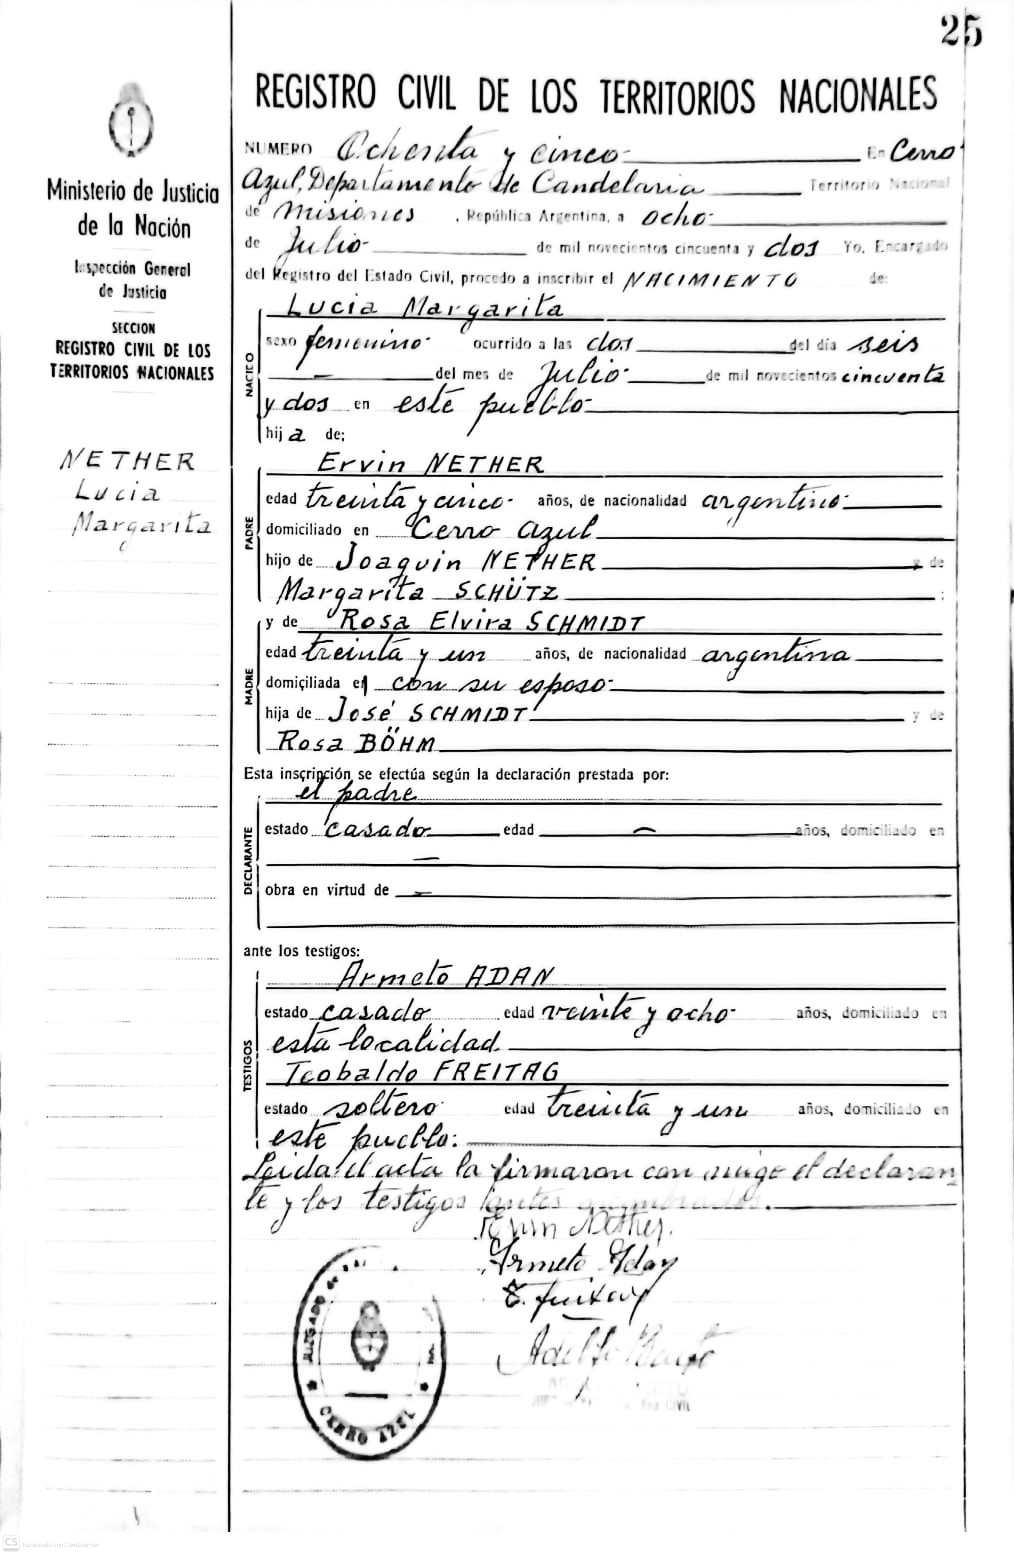 25
REGISTRO CIVIL DE LOS TERRITORIOS NACIONALES
Ministerio de Justicia
de la Nación
Inspección General
de Justicia
SECCION
REGISTRO CIVIL DE LOS
TERRITORIOS NACIONALES
NETHER
Lucia
Margarita
NUMERO Ochenta y cinco En Cerro
Azul, Departamento de Candelaria Territorio Nacional
de Misiones, República Argentina, a ocho
de Julio de mil novecientos cincuenta y dos Yo, Encargado
del Registro del Estado Civil, procedo a inscribir el NACIMIENTO de:
NACICO
Lucia Margarita
sexo femenino ocurrido a las dos del día seis
— del mes de Julio de mil novecientos cincuenta
y dos en este pueblo
hija de;
PADRE
Ervin NETHER
edad treinta y cinco años, de nacionalidad argentino
domiciliado en Cerro Azul
hijo de Joaquin NETHER y de
Margarita SCHÜTZ ;
MADRE
y de Rosa Elvira SCHMIDT
edad treinta y un años, de nacionalidad argentina
domiciliada en con su esposo
hija de José SCHMIDT y de
Rosa BÖHM
Esta inscripción se efectúa según la declaración prestada por:
DECLARANTE
el padre
estado casado edad — años, domiciliado en
—
obra en virtud de —
ante los testigos:
TESTIGOS
Armeto ADAN
estado casado edad veinte y ocho años, domiciliado en
esta localidad
Teobaldo FREITAG
estado soltero edad treinta y un años, domiciliado en
este pueblo.
Leida el acta la firmaron con migo el declaran
te y los testigos antes
Ervin Nether.
Armeto Adan
T. Freitag
JUZGADO DE
CERRO AZUL
CIVIL
CS